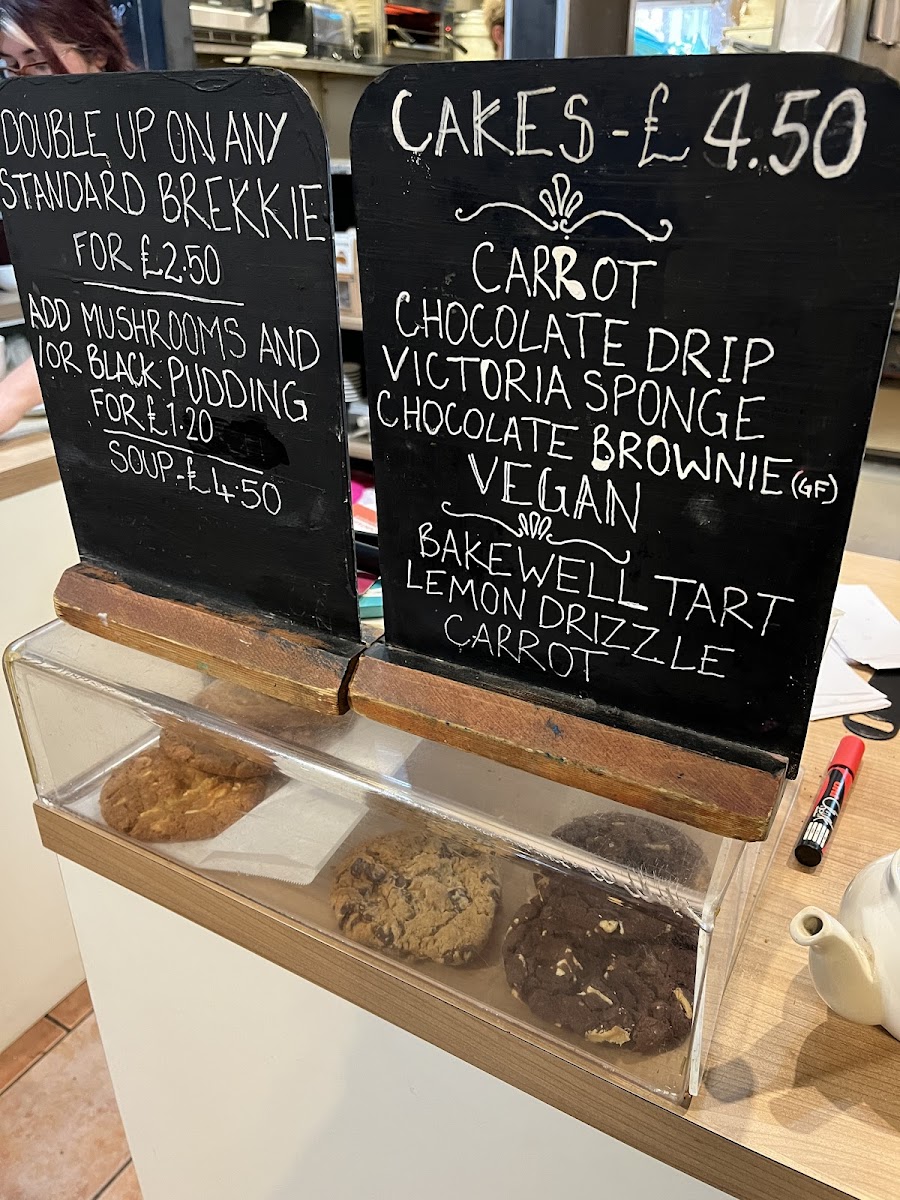 DOUBLE UP ON ANY
STANDARD BREKKIE
FOR £2.50
ADD MUSHROOMS AND
/OR BLACK PUDDING
FOR £1.20
SOUP-£4.50
CAKES-£4.50
CARROT
CHOCOLATE DRIP
VICTORIA SPONGE
CHOCOLATE BROWNIE (GF)
VEGAN
BAKEWELL TART
LEMON DRIZZLE
CARROT